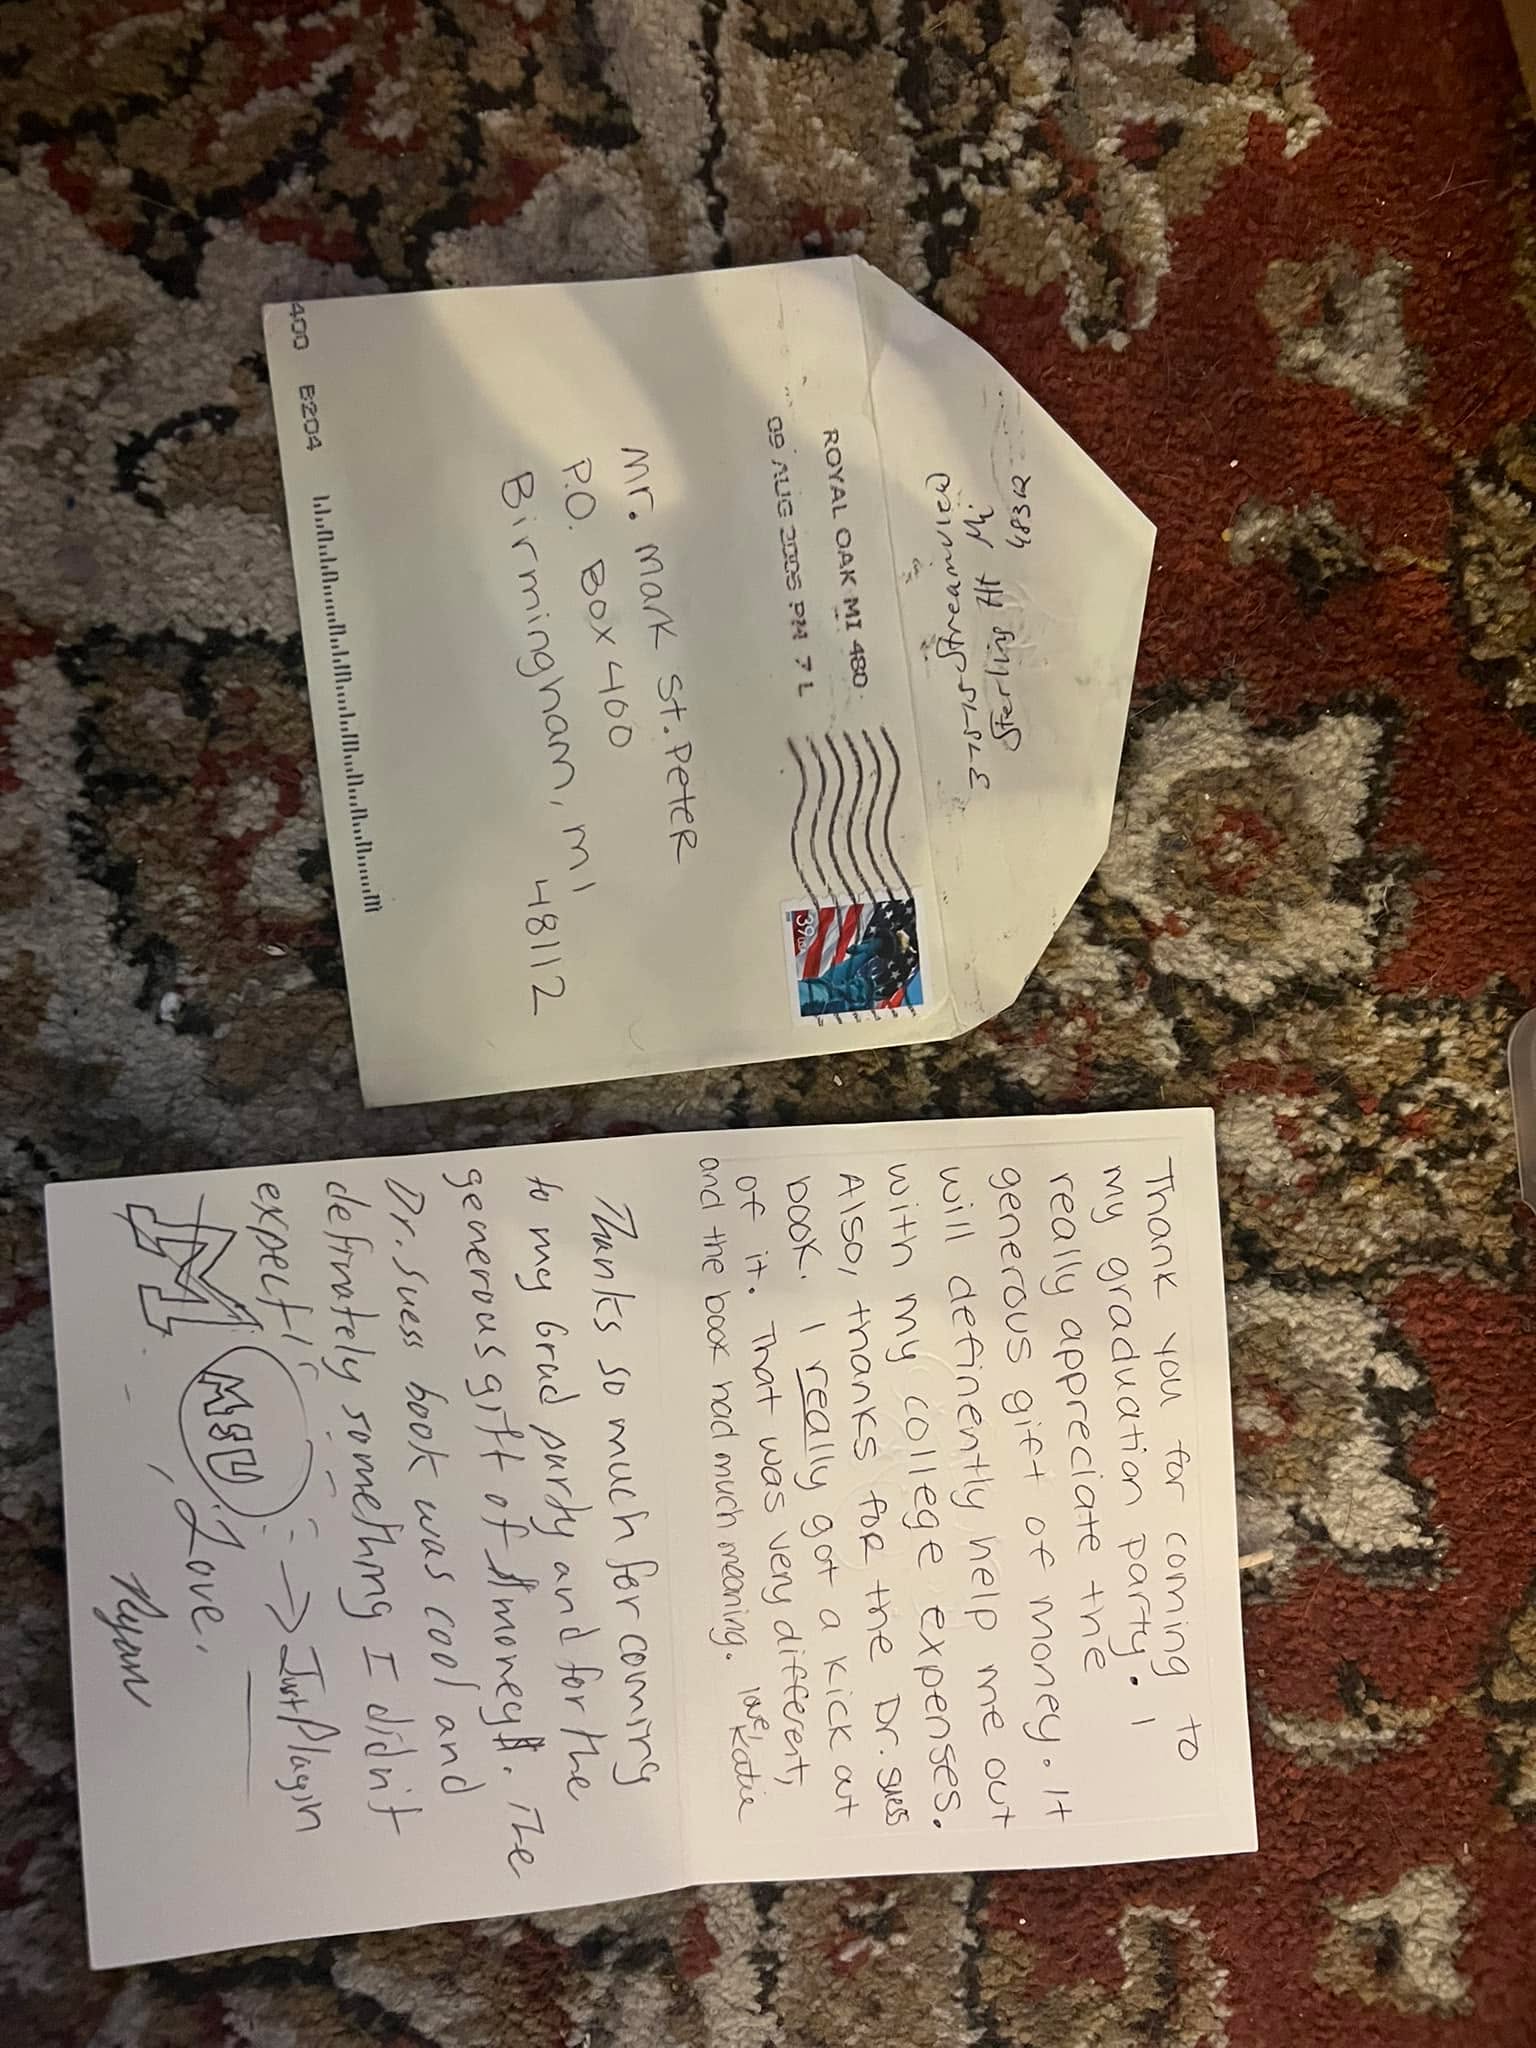 48312
Sterling Ht Mi
ROYAL OAK MI 480
09 AUG 2006 PM 7 L
39
Mr. Mark St. Peter
P.O. Box 400
Birmingham, MI
48112
400 B204
Thank you for coming to
my graduation party. I
really appreciate the
generous gift of money. It
will definently help me out
with my college expenses.
Also, thanks for the Dr. suess
book. I really got a kick out
of it. That was very different,
and the book had much meaning. love, Katie
Thanks so much for coming
to my Grad party and for the
generous gift of $money$. The
Dr. suess book was cool and
definately something I didn't
expect!
M MSU → Just Playin
Love,
Ryan